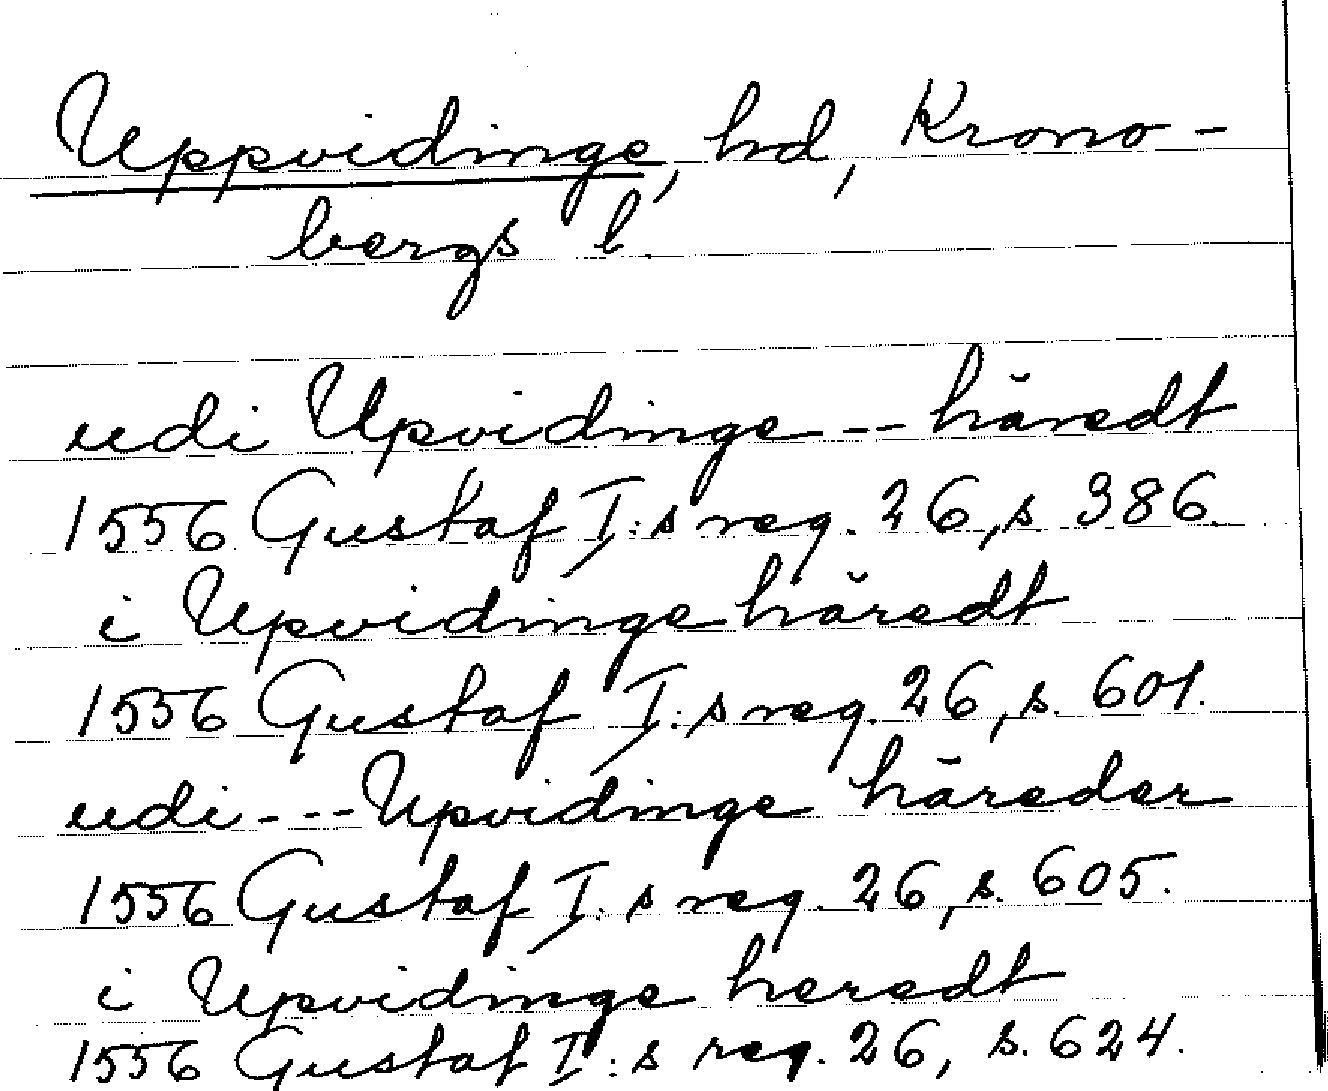 Uppvidinge, hd, Krono-
bergs l.
udi Upvidinge -- häredt
1556 Gustaf I:s reg. 26, s 386.
i Upvidinge häredt
1556 Gustaf I:s reg. 26, s. 601.
udi --- Upvidinge häreder
1556 Gustaf I:s reg. 26, s. 605.
i Upvidinge heredt
1556 Gustaf I:s reg. 26, s. 624.